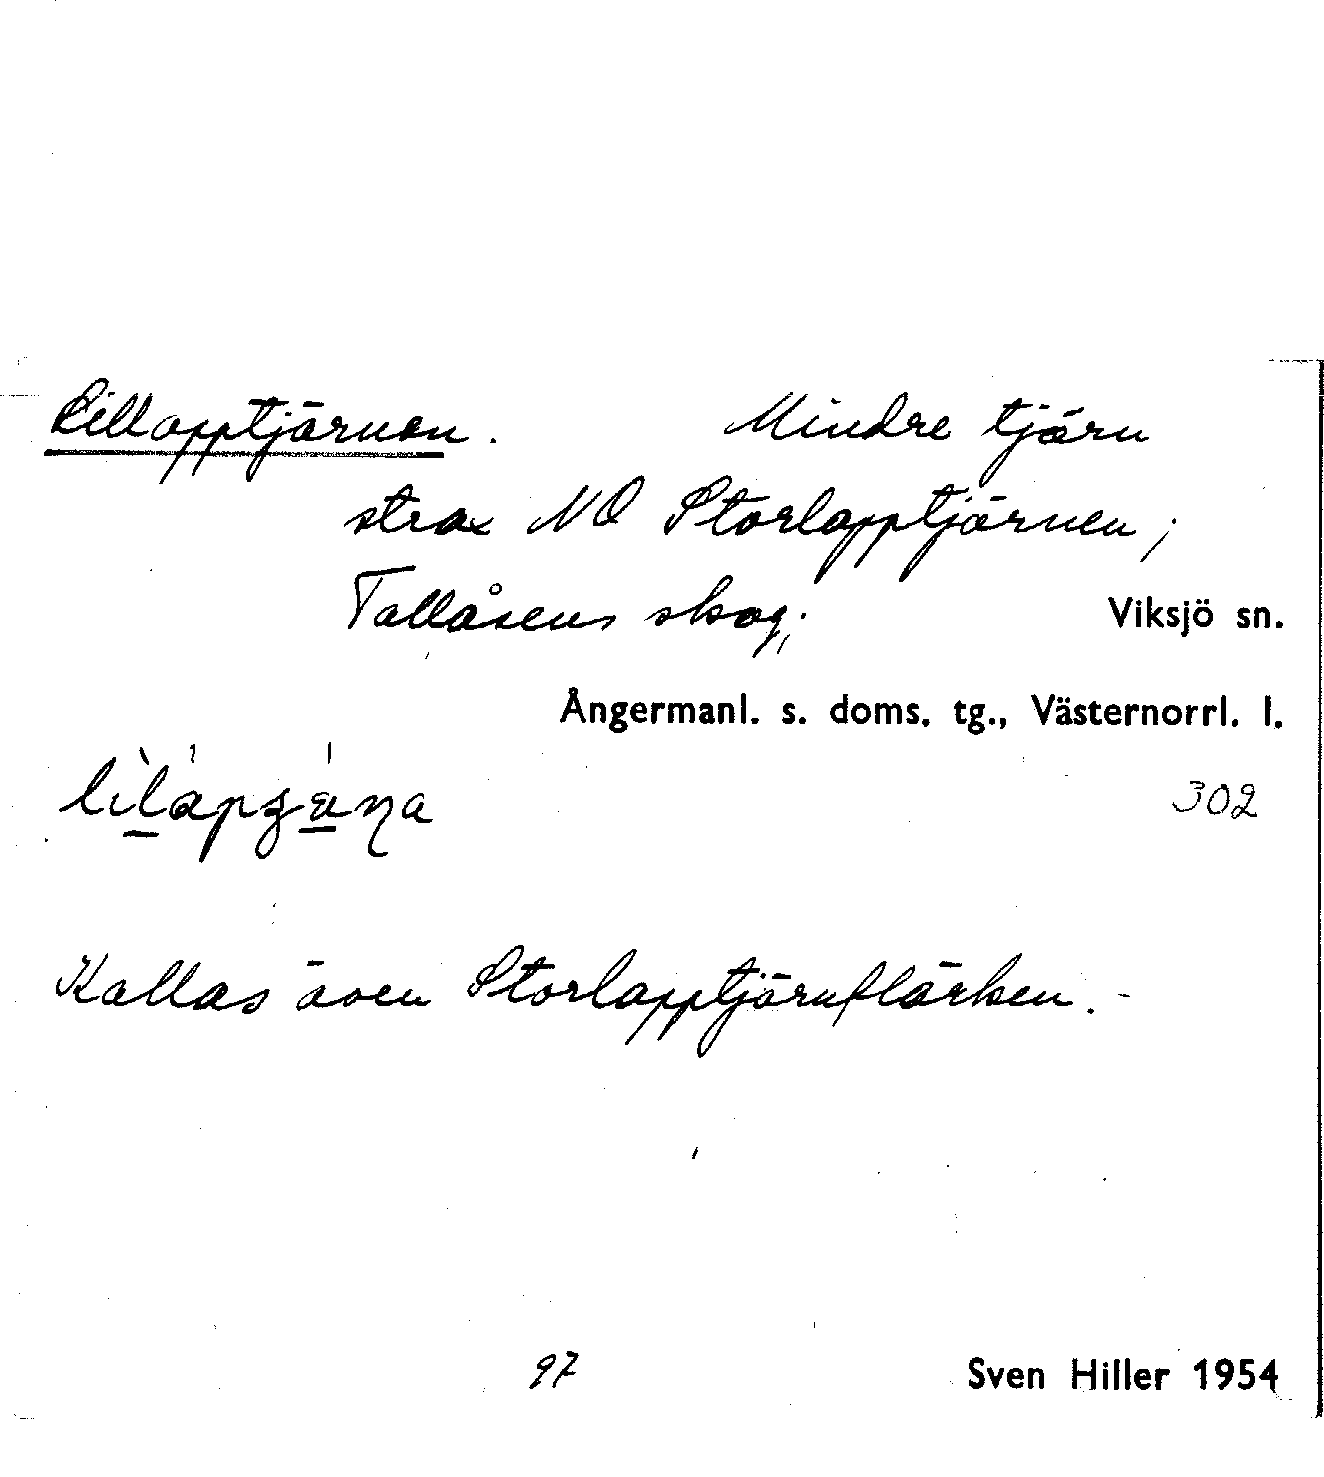 Lillapptjärnen. Mindre tjärn
strax NO Storlapptjärnen;
Tallåsens skog; Viksjö sn.
Ångermanl. s. doms. tg., Västernorrl. l.
302
Kallas även Storlapptjärnflärken.-
97 Sven Hiller 1954